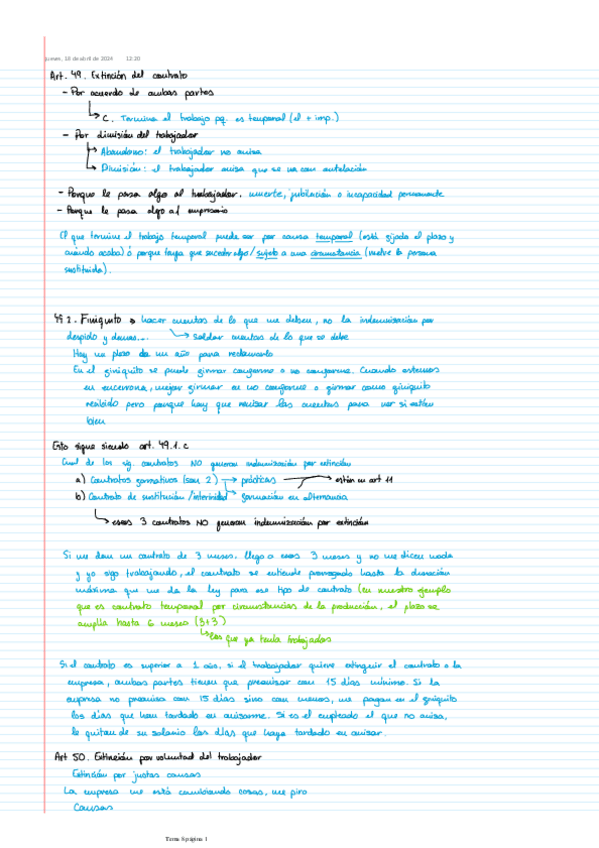 jueves, 18 de abril de 2024 12:20
Art. 49. Extinción del contrato
- Por acuerdo de ambas partes
C. Termina el trabajo pq. es temporal (el + imp.)
- Por dimisión del trabajador
Abandono: el trabajador no avisa
Dimisión: el trabajador avisa que se va con antelación
- Porque le pasa algo al trabajador. muerte, jubilación o incapacidad permanente
- Porque le pasa algo al empresario
El que termine el trabajo temporal puede ser por causa temporal (está fijado el plazo y
cuándo acaba) ó porque tenga que suceder algo / sujeto a una circunstancia (vuelve la persona
sustituida).
49.2. Finiquito → hacer cuentas de lo que me deben, no la indemnización por
despido y demás... → Saldar cuentas de lo que se debe
Hay un plazo de un año para reclamarlo
En el finiquito se puede firmar conforme o no conforme. Cuando estemos
en encerrona, mejor firmar en no conforme o firmar como finiquito
recibido pero porque hay que revisar las cuentas para ver si están
bien
Esto sigue siendo art. 49.1.c
Cual de los sig. contratos NO generan indemnización por extinción
a) Contratos formativos (son 2) → prácticas → están en art 11
b) Contrato de sustitución / interinidad formación en alternancia
esos 3 contratos NO generan indemnización por extinción
Si me dan un contrato de 3 meses, llego a esos 3 meses y no me dicen nada
y yo sigo trabajando, el contrato se entiende prorrogado hasta la duración
máxima que me da la ley para ese tipo de contrato (en nuestro ejemplo
que es contrato temporal por circunstancias de la producción, el plazo se
amplía hasta 6 meses (3+3)
los que ya tenía trabajados
Si el contrato es superior a 1 año, si el trabajador quiere extinguir el contrato o la
empresa, ambas partes tienen que preavisar con 15 días mínimo. Si la
empresa no preavisa con 15 días sino con menos, me pagan en el finiquito
los días que han tardado en avisarme. Si es el empleado el que no avisa,
le quitan de su salario los días que haya tardado en avisar.
Art 50. Extinción por voluntad del trabajador
Extinción por justas causas
La empresa me está cambiando cosas, me piro
Causas
Tema 8 página 1